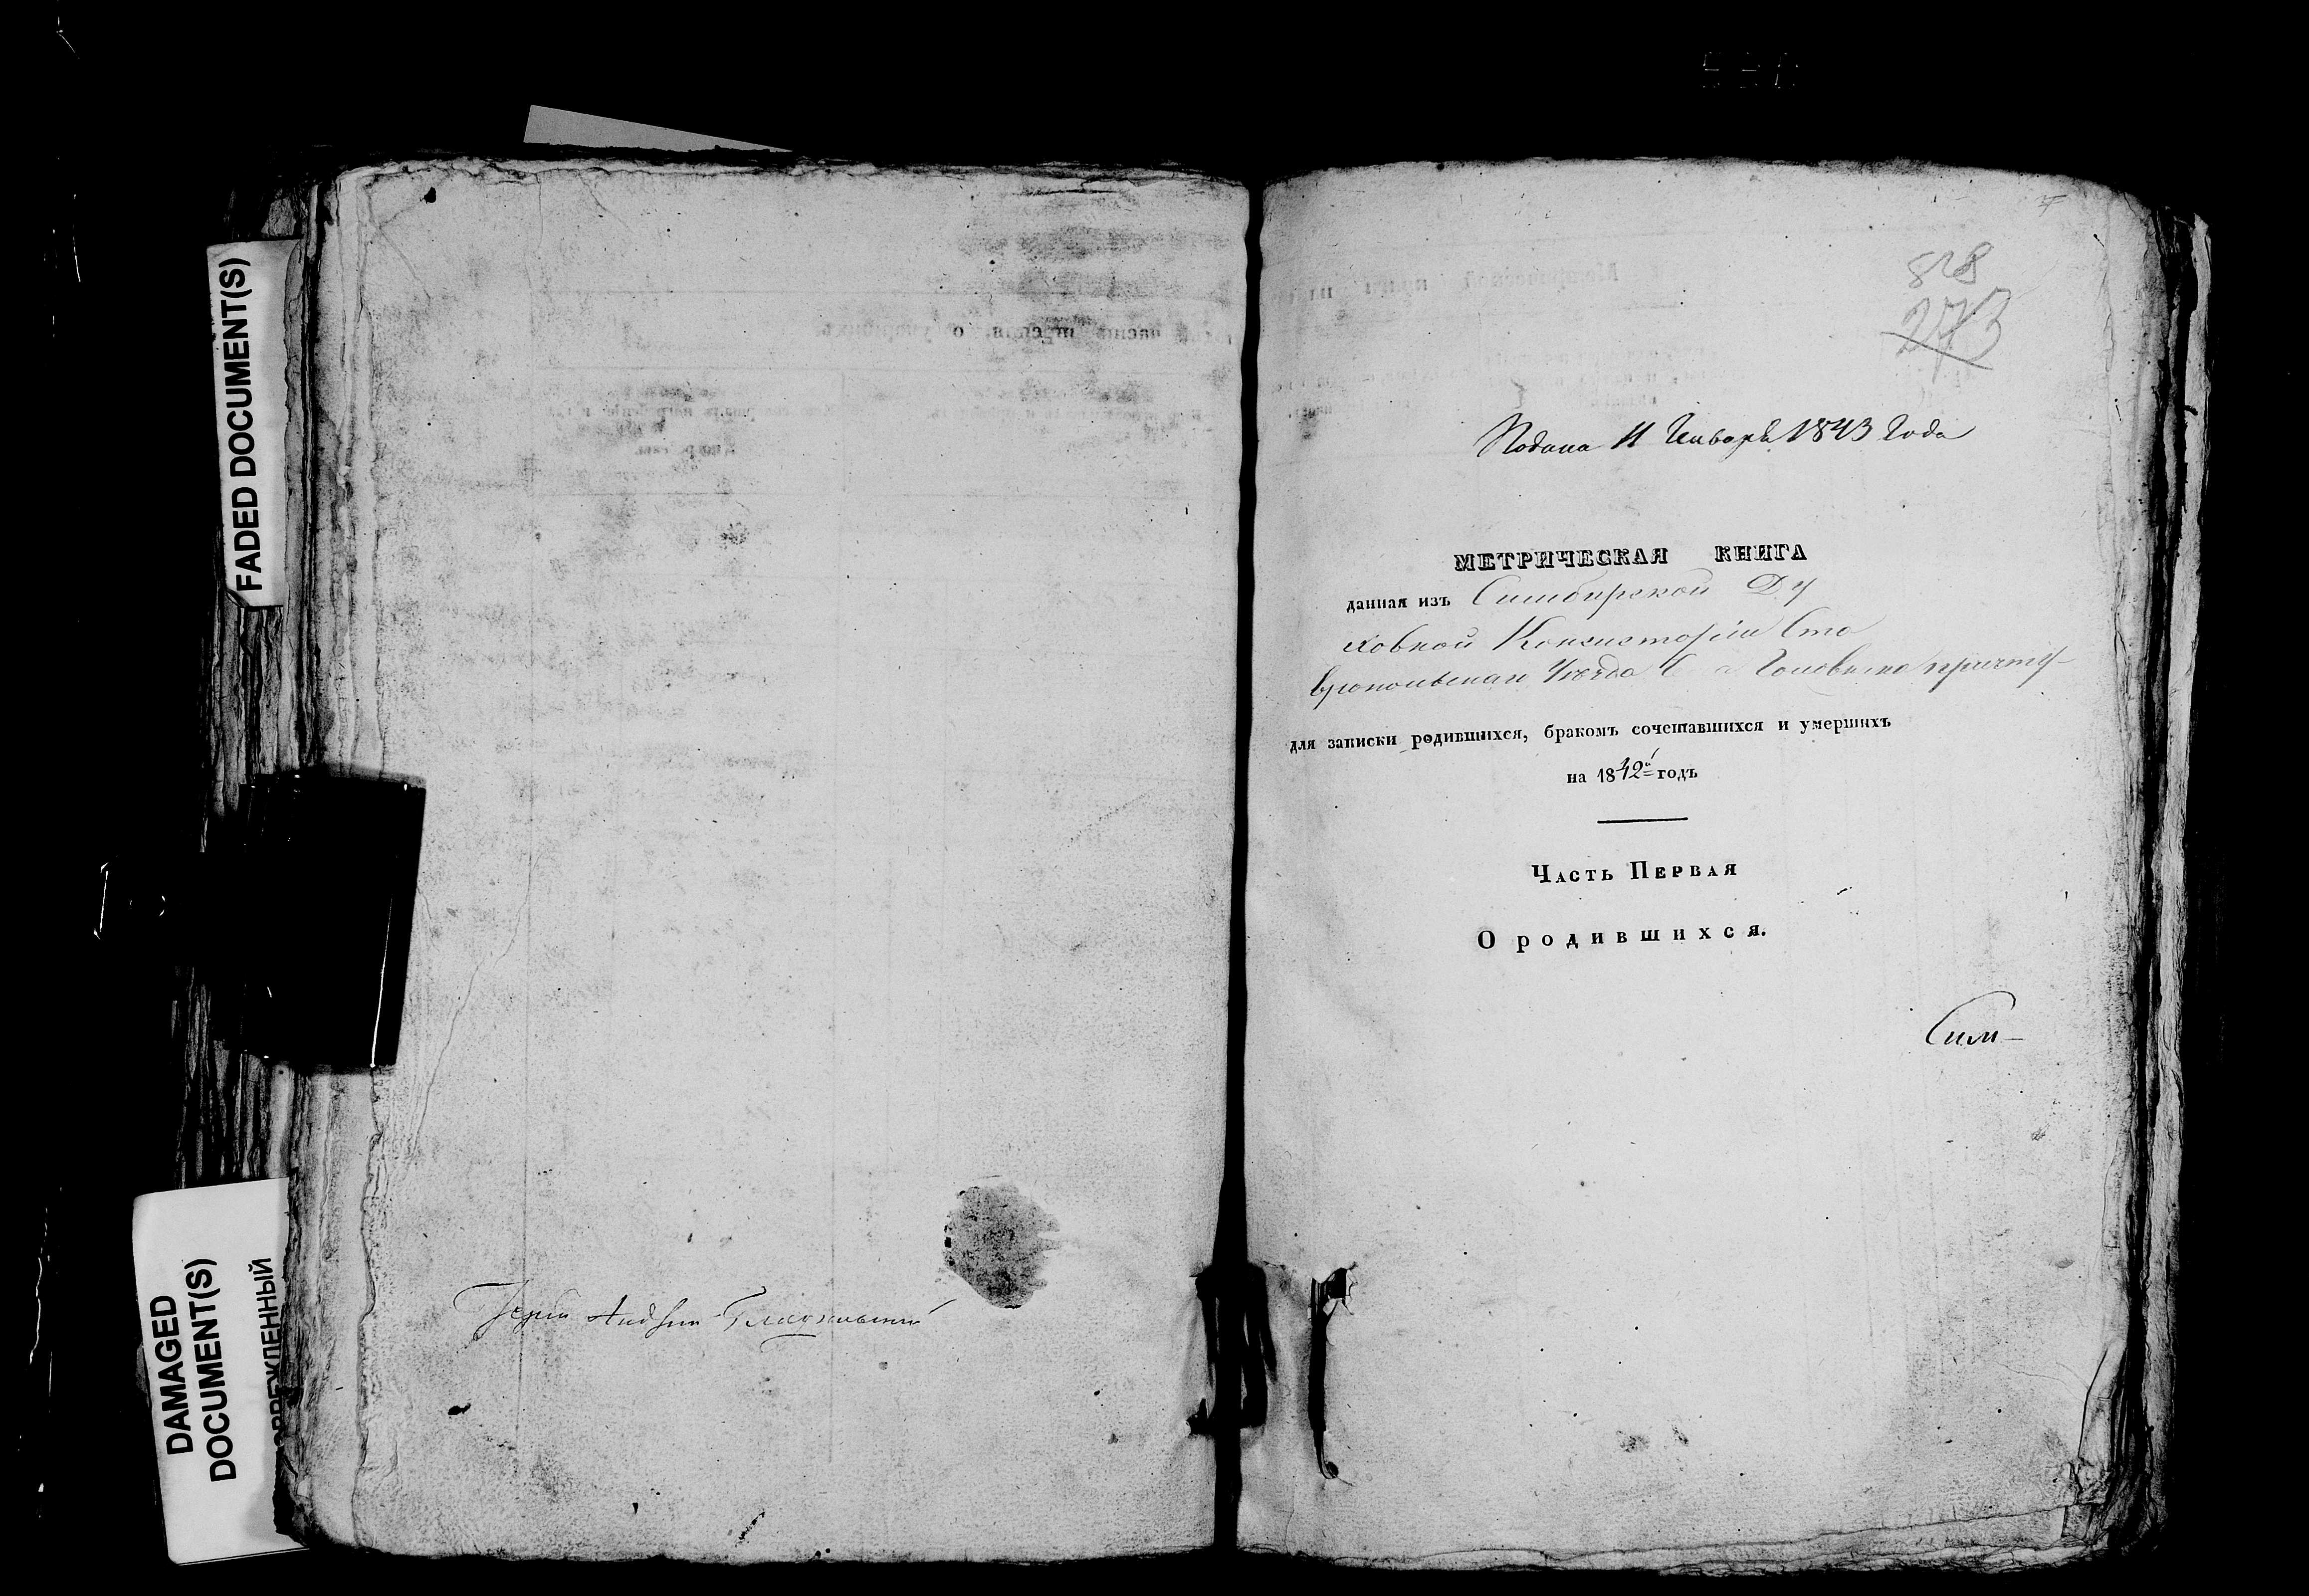 FADED DOCUMENT(S)
DAMAGED
DOCUMENT(S)
Іерей Андрей
828
273
Подана 11 Генваря 1843 Года
МЕТРИЧЕСКАЯ КНИГА
данная изъ Симбирской Ду
ховной Консисторіи Ста
вропольскаго Уѣзда С причту
для записки родившихся, бракомъ сочетавшихся и умершихъ
на 1842й годъ
Часть Первая
О родившихся.
Сим-